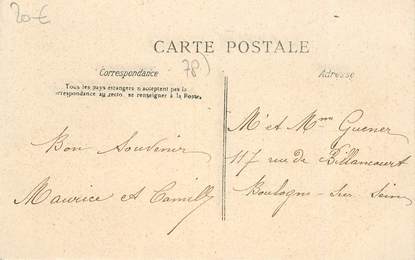 20 €
CARTE POSTALE
Correspondance
78)
Adresse
Tous les pays étrangers n'acceptent pas la
correspondance au recto. se renseigner à la Poste.
Bon Souvenir
Maurice et Camille
Mr et Mme Guener
117 rue de Billancourt
Boulogne-Sur-Seine